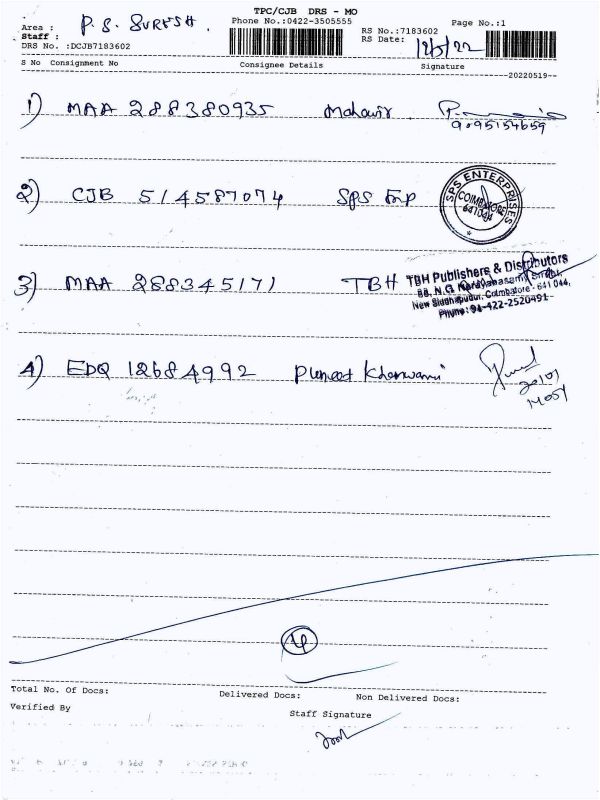 TPC/CJB DRS - MO
Area : P. S. SURESH.
Phone No.:0422-3505555
Page No.:1
Staff :
RS No.:7183602
DRS No. :DCJB7183602
RS Date: 19/5/22
S No Consignment No Consignee Details Signature
--20220519--
1) MAA 288380935 Mahavir.
9095154659
2) CJB 514587074 SPS Enp
SPS ENTERPRISES
COIMBATORE
641044
3) MAA 288345171 TBH
TBH Publishers & Distributors
88, N.G. Narayanasamy Street,
New Siddhapudur, Coimbatore - 641 044.
Phone : 91-422-2520491
4) EDQ 12684992 Puneet Khemwani
4
Total No. Of Docs: Delivered Docs: Non Delivered Docs:
Verified By
Staff Signature